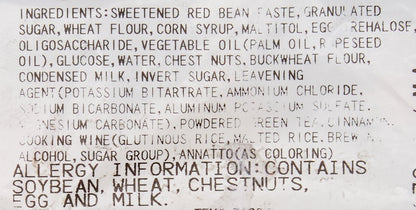 INGREDIENTS:SWEETENED RED BEAN PASTE,GRANULATED
SUGAR,WHEAT FLOUR,CORN SYRUP,MALTITOL,EGG,TREHALOSE,
OLIGOSACCHARIDE,VEGETABLE OIL(PALM OIL,RAPESEED
OIL),GLUCOSE,WATER,CHESTNUTS,BUCKWHEAT FLOUR,
CONDENSED MILK,INVERT SUGAR,LEAVENING
AGENT(POTASSIUM BITARTRATE,AMMONIUM CHLORIDE,
SODIUM BICARBONATE,ALUMINUM POTASSIUM SULFATE,
MAGNESIUM CARBONATE),POWDERED GREEN TEA,CINNAMON,
COOKING WINE(GLUTINOUS RICE,MALTED RICE,BREWING
ALCOHOL,SUGAR GROUP),ANNATTO(AS COLORING)
ALLERGY INFORMATION:CONTAINS
SOYBEAN,WHEAT,CHESTNUTS,
EGG AND MILK.